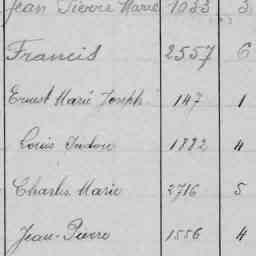 Jean Pierre Marie 1033 3
Francis 2557 6
Ernest Marie Joseph 147 1
Louis Isidore 1882 4
Charles Marie 2716 5
Jean-Pierre 1556 4